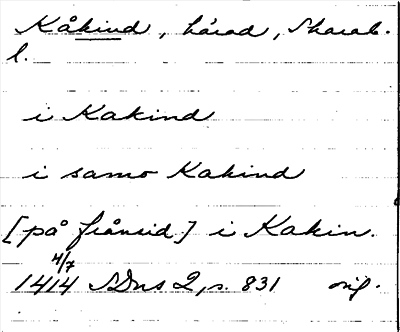 Kåkind, härad, Skarab.
l.
i Kakind
i samo Kakind
[på frånsid] i Kakin.
4/7
1414 SDns 2, s. 831 orig.